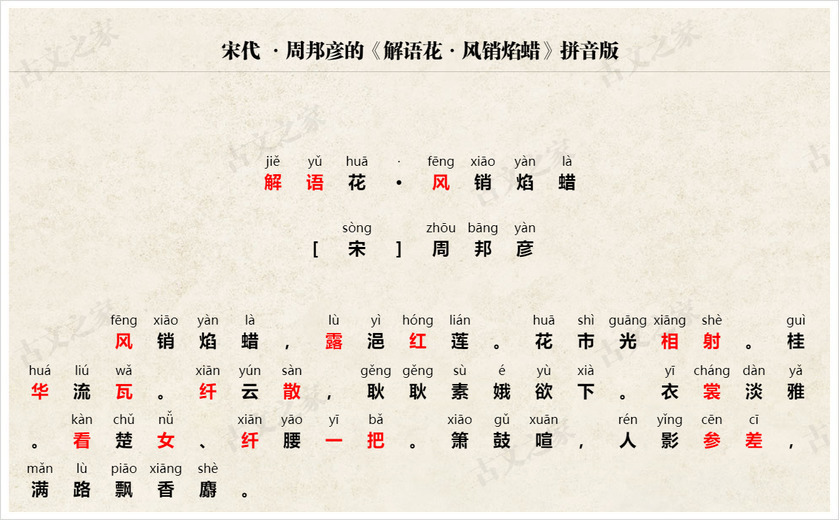 宋代 ·周邦彦的《解语花·风销焰蜡》拼音版
jiě yǔ huā · fēng xiāo yàn là
解 语 花 • 风 销 焰 蜡
sòng zhōu bāng yàn
[ 宋 ] 周 邦 彦
fēng xiāo yàn là lù yì hóng lián huā shì guāng xiāng shè guì
风 销 焰 蜡 , 露 浥 红 莲 。 花 市 光 相 射 。 桂
huá liú wǎ xiān yún sàn gěng gěng sù é yù xià yī cháng dàn yǎ
华 流 瓦 。 纤 云 散 , 耿 耿 素 娥 欲 下 。 衣 裳 淡 雅
kàn chǔ nǚ xiān yāo yī bǎ xiāo gǔ xuān rén yǐng cēn cī
。 看 楚 女 、 纤 腰 一 把 。 箫 鼓 喧 , 人 影 参 差 ,
mǎn lù piāo xiāng shè
满 路 飘 香 麝 。
古文之家
古文之家
古文之家
古文之家
古文之家
古文之家
古文之家
古文之家